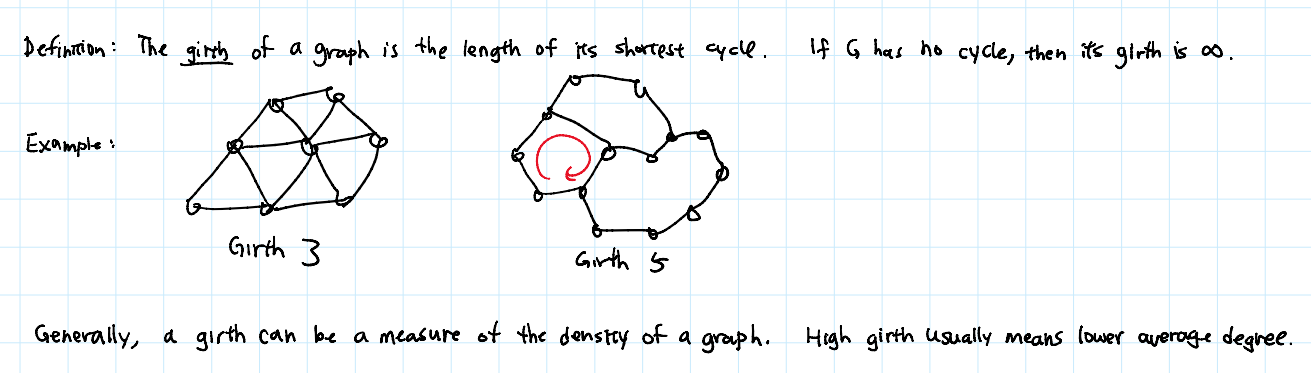 Definition: The girth of a graph is the length of its shortest cycle. If G has no cycle, then it's girth is ∞.
Example:
Girth 3
Girth 5
Generally, a girth can be a measure of the density of a graph. High girth usually means lower average degree.